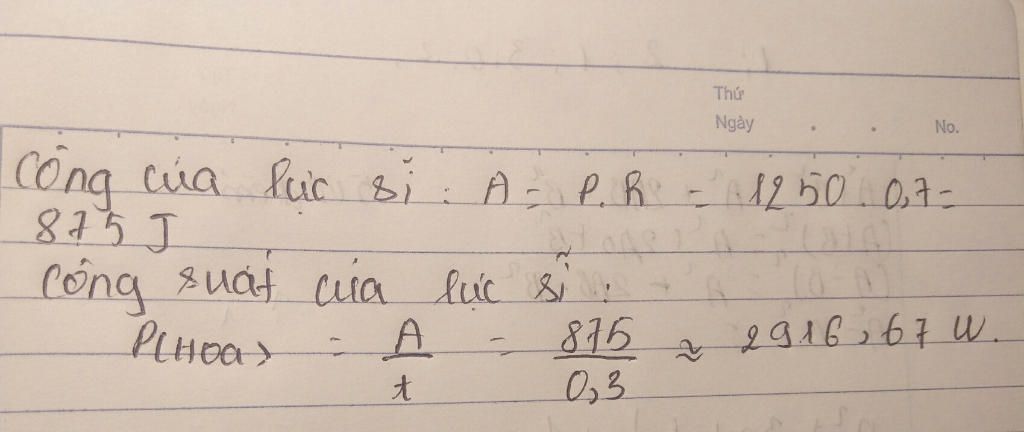 Thứ
Ngày . . No.
Công của lực sĩ : A = P.h = 1250 . 0,7 =
875 J
Công suất của lực sĩ :
P(Hoa) = A/t = 875/0,3 ≈ 2916,67 W.